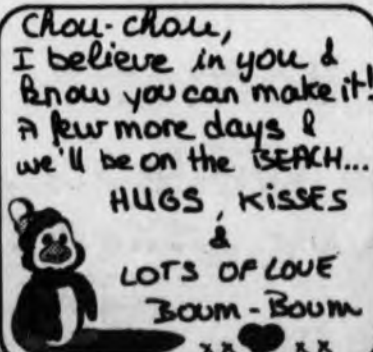 Chou-chou,
I believe in you &
know you can make it!
A few more days &
we'll be on the BEACH...
HUGS, KISSES
&
LOTS OF LOVE
Boum-Boum
x x x x